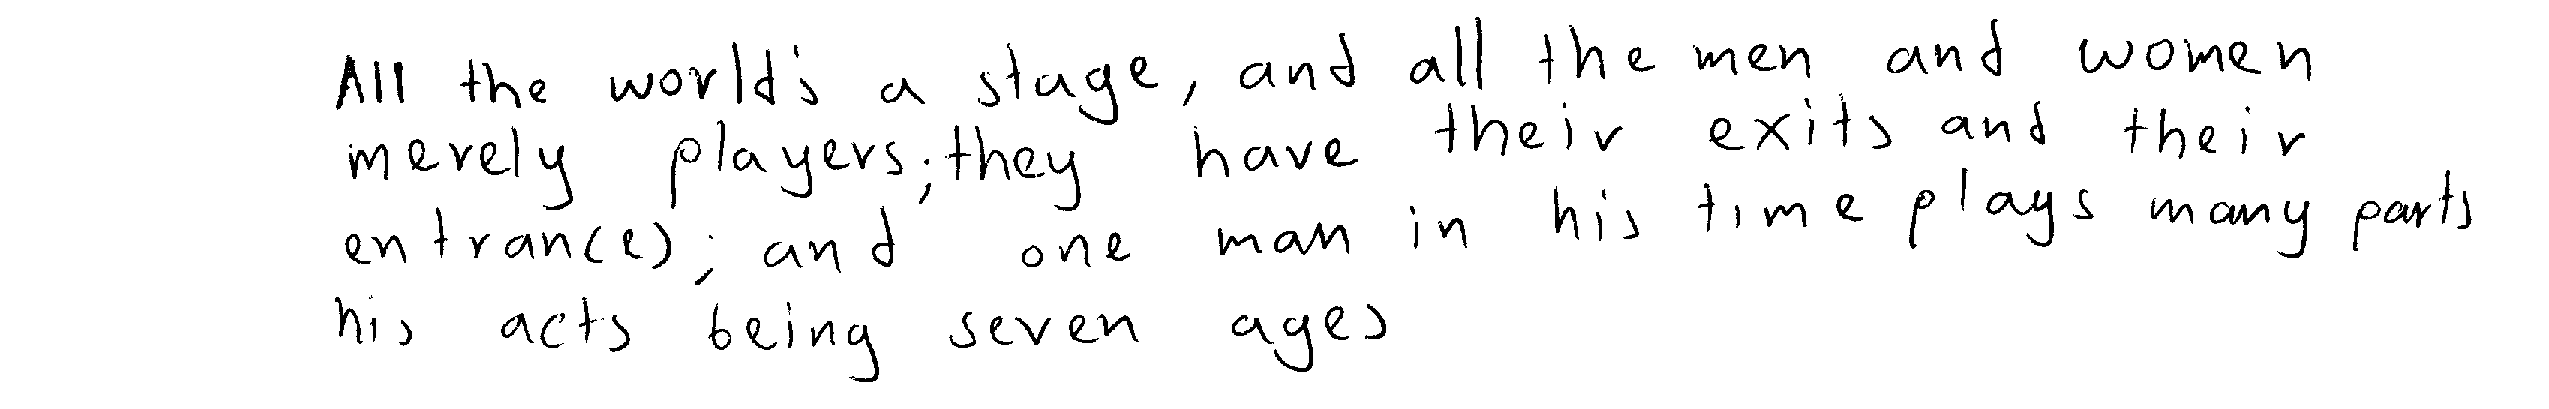 All the world's a stage, and all the men and women
merely players; they have their exits and their
entrances; and one man in his time plays many parts
his acts being seven ages